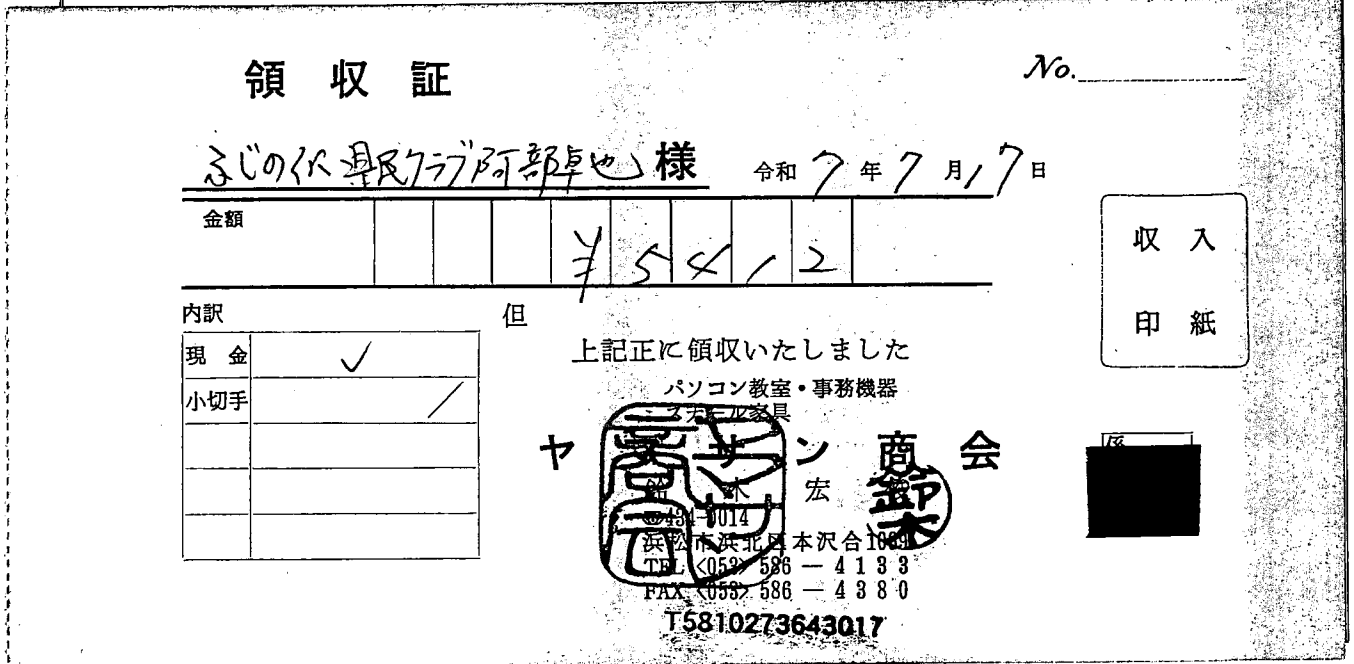 領収証
No.
ふじのくに県民クラブ阿部卓也様 令和7年7月17日
金額 ¥5412
収入
印紙
内訳 但
現金 ✓
小切手
上記正に領収いたしました
パソコン教室・事務機器
スチール家具
ヤマサン商会
鈴木宏
鈴木
〒434-0014
浜松市浜北区本沢合
TEL <053> 586-4133
FAX <053> 586-4380
T5810273643017
係